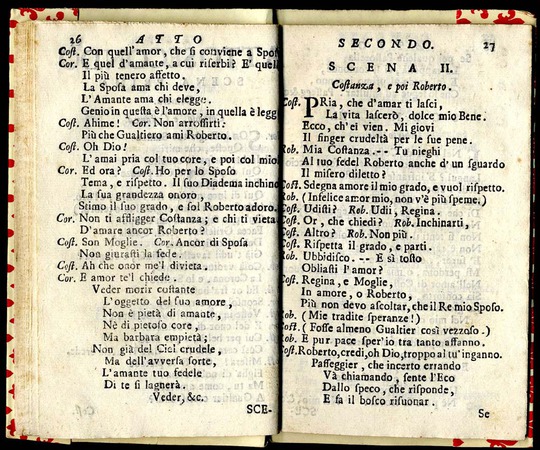 26 ATTO
Cost. Con quell'amor, che si conviene a Spos
Cor. E quel d'amante, a cui riserbi? E' quell
Il più tenero affetto.
La Sposa ama chi deve,
L'Amante ama chi elegge.
Genio in questa è l'amore, in quella è legg
Cost. Ahime! Cor. Non arrossirti?
Più che Gualtiero ami Roberto.
Cost. Oh Dio!
L'amai pria col tuo core, e poi col mio.
Cor. Ed ora? Cost. Ho per lo Sposo
Tema, e rispetto. Il suo Diadema inchino
La sua grandezza onoro,
Stimo il suo grado, e sol Roberto adoro.
Cor. Non ti affligger Costanza; e chi ti vieta
D'amare ancor Roberto?
Cost. Son Moglie. Cor. Ancor di Sposa
Non giurasti la fede.
Cost. Ah che onor me'l divieta.
Cor. E amor te'l chiede.
Veder morir costante
L'oggetto del suo amore,
Non è pietà di amante,
Nè di pietoso core,
Ma barbara empietà;
Non già del Ciel crudele,
Ma dell'avversa sorte,
L'amante tuo fedele
Di te si lagnerà.
Veder, &c.
SCE-
SECONDO. 27
SCENA II.
Costanza, e poi Roberto.
Cost. PRia, che d'amar ti lasci,
La vita lascerò, dolce mio Bene.
Ecco, ch'ei vien. Mi giovi
Il finger crudeltà per le sue pene.
Rob. Mia Costanza. -- Tu nieghi
Al tuo fedel Roberto anche d'un sguardo
Il misero diletto?
Cost. Sdegna amore il mio grado, e vuol rispetto.
Rob. (Infelice amor mio, non v'è più speme.)
Cost. Udisti? Rob. Udii, Regina.
Cost. Or, che chiedi? Rob. Inchinarti,
Cost. Altro? Rob. Non più.
Cost. Rispetta il grado, e parti.
Rob. Ubbidisco. -- E sì tosto
Obliasti l'amor?
Cost. Regina, e Moglie,
In amore, o Roberto,
Più non devo ascoltar, che il Re mio Sposo.
Rob. (Mie tradite speranze!)
Cost. (Fosse almeno Gualtier così vezzoso.)
Rob. E pur pace sper'io tra tanto affanno.
Cost. Roberto, credi, oh Dio, troppo al tu' inganno.
Passeggier, che incerto errando
Và chiamando, sente l'Eco
Dallo speco, che risponde,
E fa il bosco risuonar.
Se